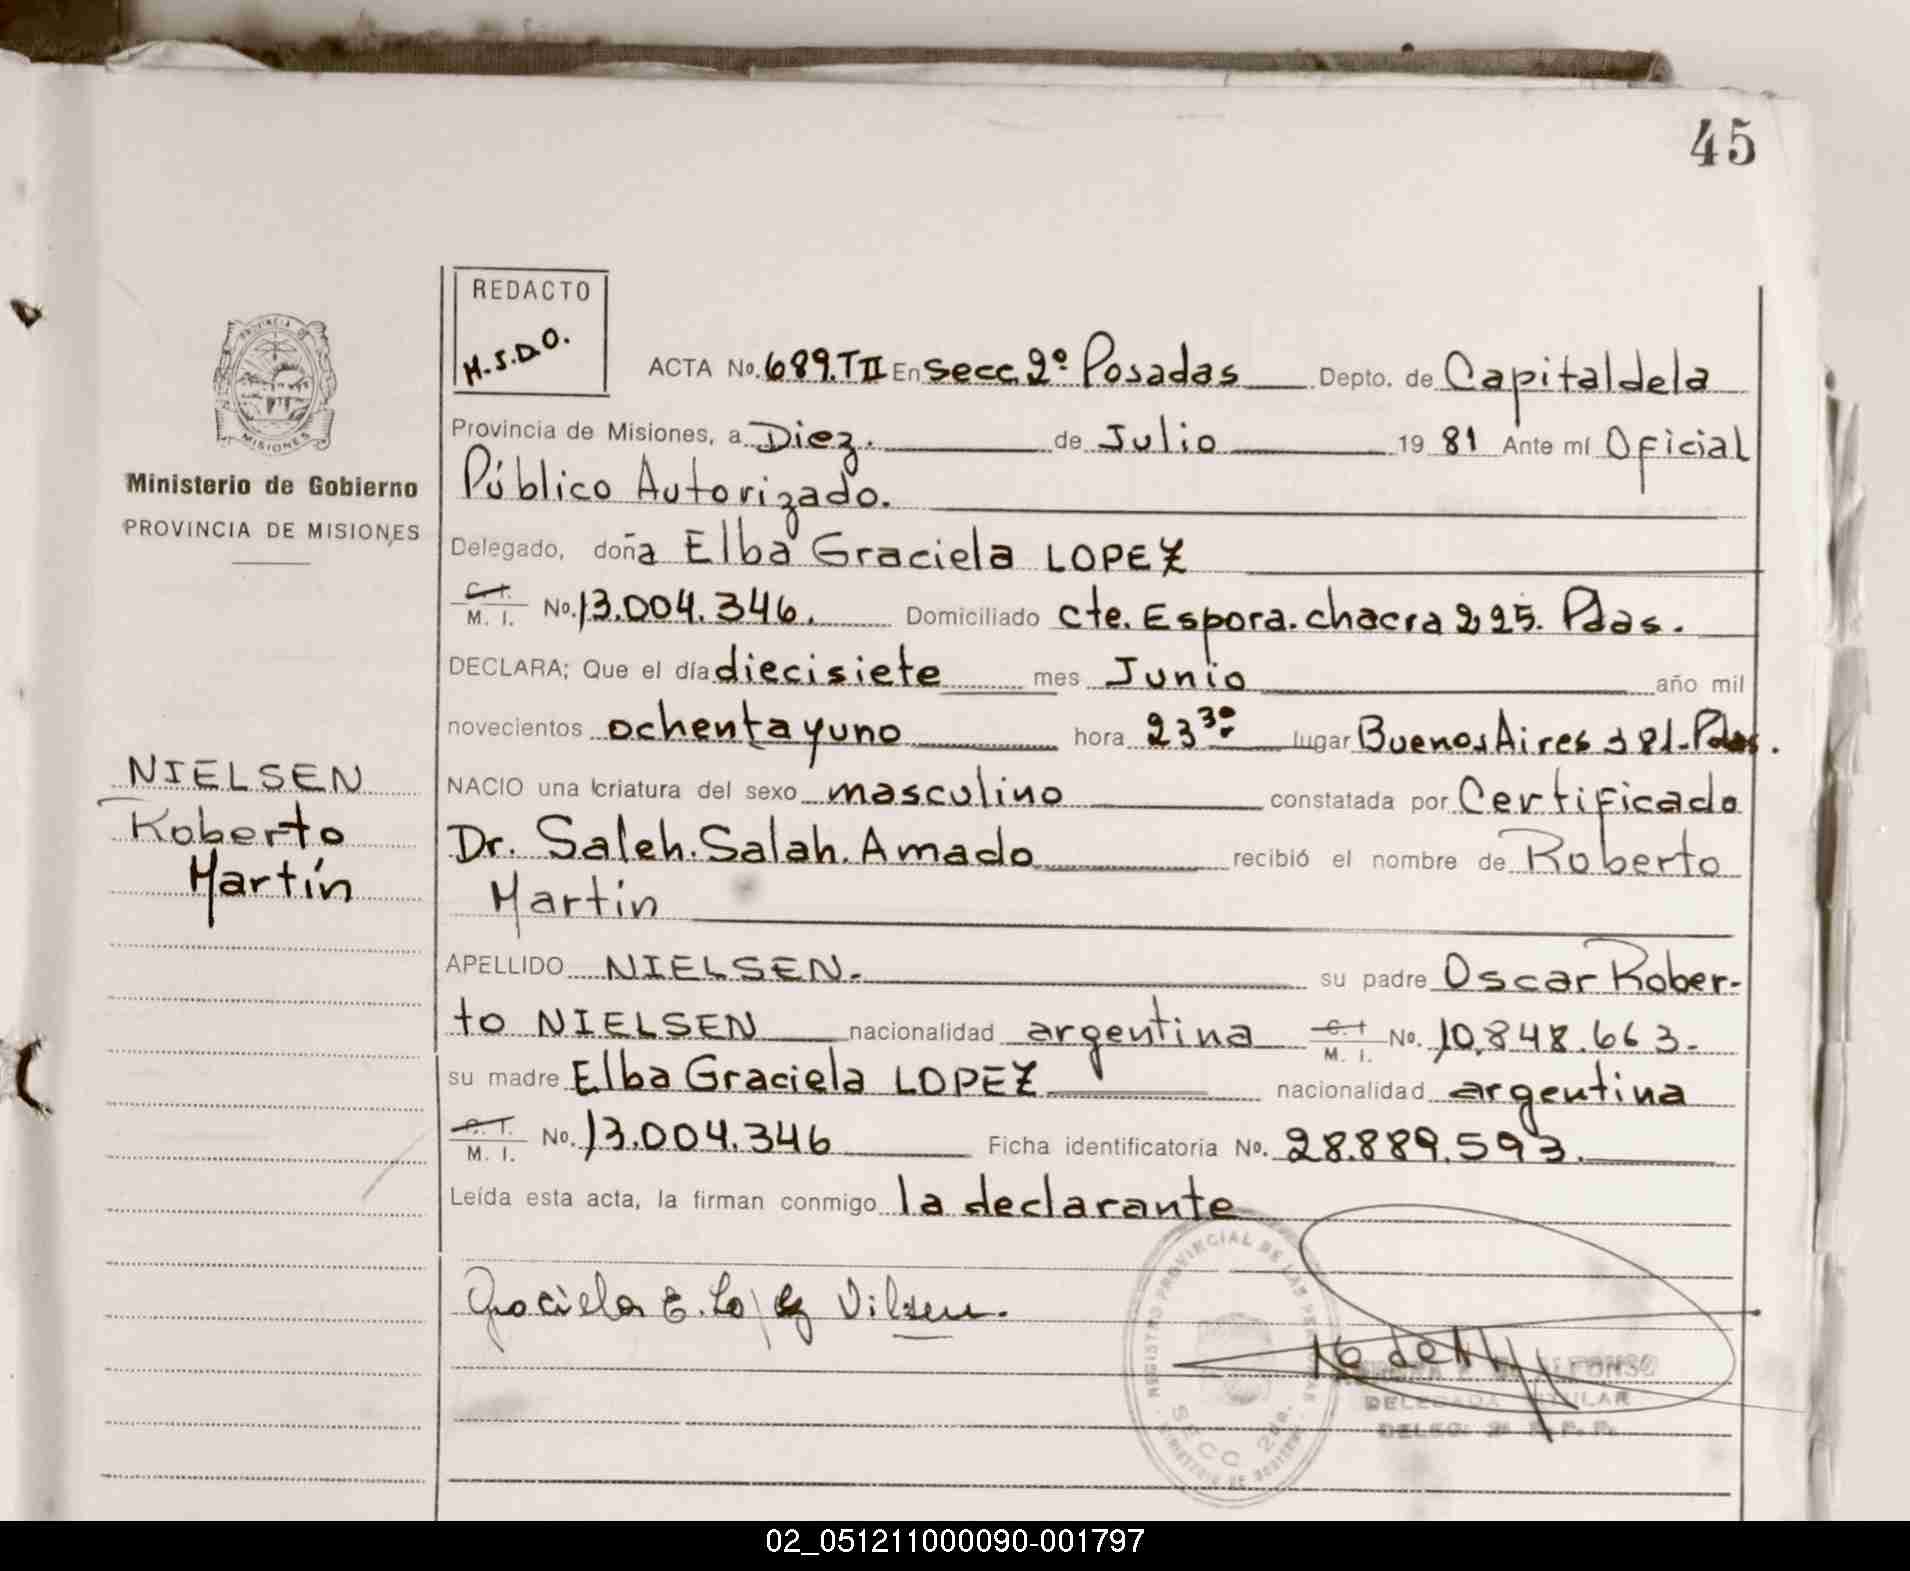 45
REDACTO
M.S.D.O.
PROVINCIA DE
MISIONES
Ministerio de Gobierno
PROVINCIA DE MISIONES
ACTA No. 689.TII En Secc. 2º Posadas Depto. de Capital de la
Provincia de Misiones, a Diez. de Julio 19 81 Ante mí Oficial
Público Autorizado.
Delegado, doña Elba Graciela LOPEZ
C. I.
M. I. No. 13.004.346. Domiciliado Cte. Espora. chacra 225. Pdas.
DECLARA; Que el día diecisiete mes Junio año mil
novecientos ochenta y uno hora 23 30 lugar Buenos Aires 381-Pdas.
NACIO una criatura del sexo masculino constatada por Certificado
Dr. Saleh. Salah. Amado recibió el nombre de Roberto
Martin
APELLIDO NIELSEN. su padre Oscar Rober-
to NIELSEN nacionalidad argentina C. I. M. I. No. 10.848.663.
su madre Elba Graciela LOPEZ nacionalidad argentina
C. I.
M. I. No. 13.004.346 Ficha identificatoria No. 28.889.593.
Leída esta acta, la firman conmigo la declarante
NIELSEN
Roberto
Martín
Graciela E. Lopez
REGISTRO PROVINCIAL DE LAS PERSONAS
SECC 2da.
MINISTERIO DE GOBIERNO
ALFONSO
DELEGADA TITULAR
DELEG. 2ª R. P. P.
02_051211000090-001797